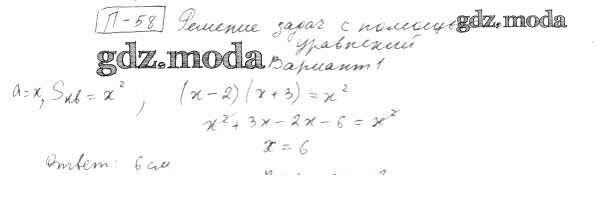 П-58 Решение задач с помощью gdz.moda
уравнений
gdz.moda Вариант 1
a=x, Sкв = x², (x-2)(x+3) = x²
x²+3x-2x-6 = x²
x = 6
Ответ: 6 см